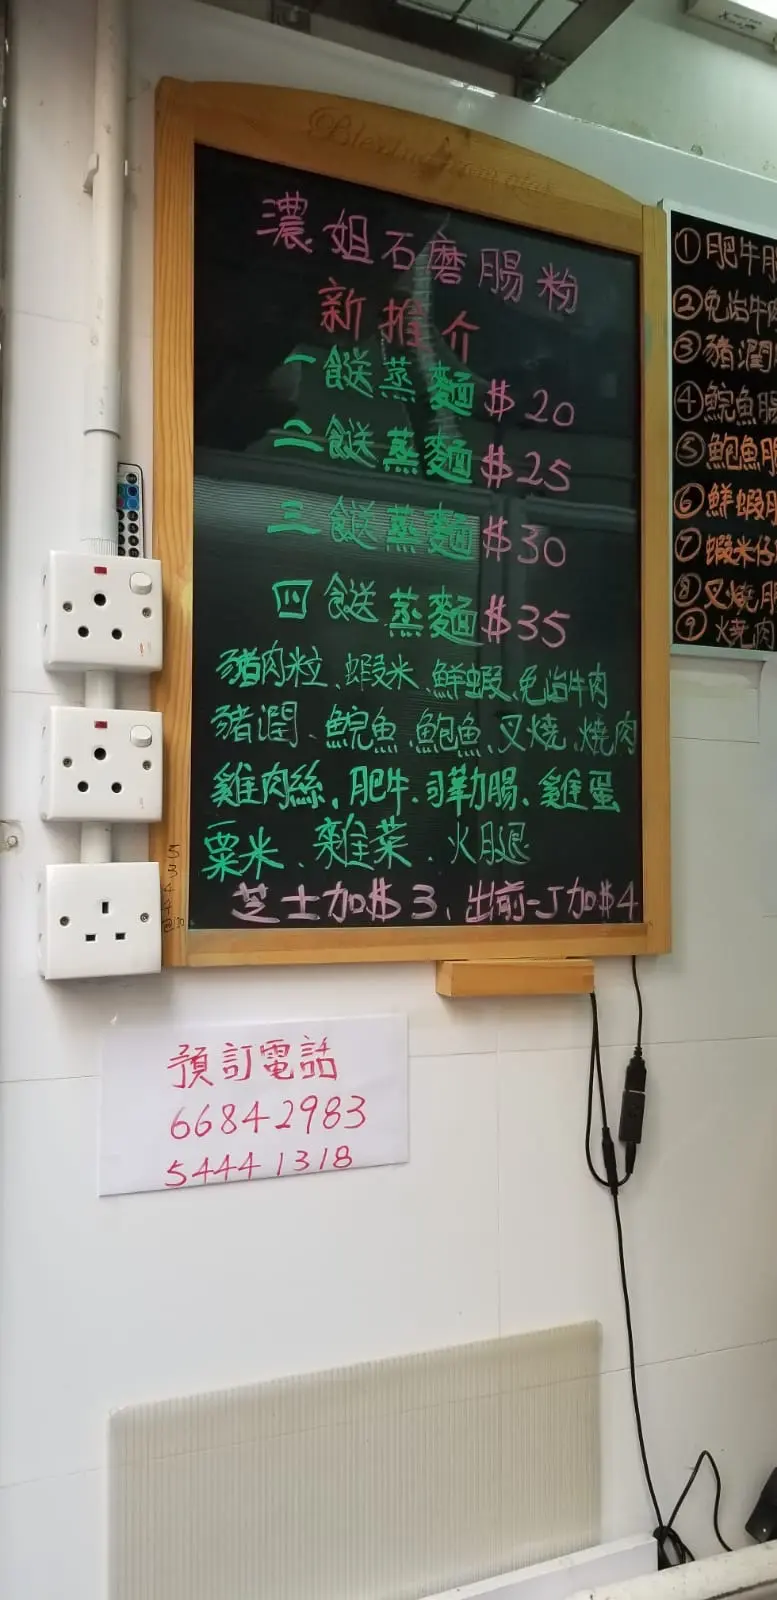 濃姐石磨腸粉
新推介
一餸蒸麵$20
二餸蒸麵$25
三餸蒸麵$30
四餸蒸麵$35
豬肉粒、蝦米、鮮蝦、免治牛肉
豬潤、鯇魚、鮑魚、叉燒、燒肉
雞肉絲、肥牛、司華力腸、雞蛋
粟米、雜菜、火腿
芝士加$3、出前一丁加$4
①肥牛腸
②免治牛肉
③豬潤
④鯇魚腸
⑤鮑魚腸
⑥鮮蝦腸
⑦蝦米仔
⑧叉燒腸
⑨燒肉
預訂電話
66842983
54441318